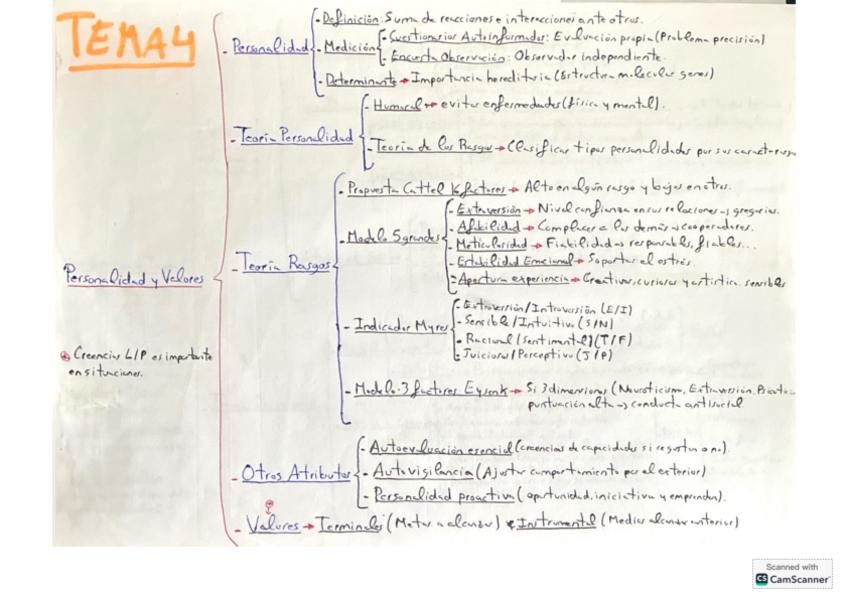 TEMA 4
Personalidad y Valores
Creencias L/P es importante
en situaciones.
- Personalidad
- Definición: Suma de reacciones e interacciones ante otros.
- Medición
- Cuestionarios Autoinformados: Evaluación propia (Problema precisión)
- Encuesta Observación: Observador independiente.
- Determinante → Importancia hereditaria (Estructura molecular genes)
- Teoría Personalidad
- Humoral → evitar enfermedades (física y mental).
- Teoría de los Rasgos → Clasificar tipos personalidades por sus
- Teoría Rasgos
- Propuesta Cattel 16 factores → Alto en algún rasgo y bajos en otros.
- Modelo 5 grandes
- Extraversión → Nivel confianza en sus relaciones → gregarios.
- Afabilidad → Complacer a los demás → cooperadores.
- Meticularidad → Fiabilidad → responsables, fiables...
- Estabilidad Emocional → Soportar el estrés.
- Apertura experiencia → Creativos, curiosos y artística sensibles
- Indicador Myres
- Extroversión/Introversión (E/I)
- Sensible/Intuitivo (S/N)
- Racional/Sentimental (T/F)
- Juicioso/Perceptivo (J/P)
- Modelo 3 factores Eysenk → Si 3 dimensiones (Neuroticismo, Extraversión,
puntuación alta → conducta antisocial
- Otros Atributos
- Autoevaluación esencial (creencias de capacidades si se gustan o no).
- Autovigilancia (Ajustar comportamiento por el exterior)
- Personalidad proactiva (oportunidad, iniciativa y emprenden).
- Valores → Terminales (Metas a alcanzar) Instrumental (Medios alcanzar anteriores)
Scanned with
CS CamScanner